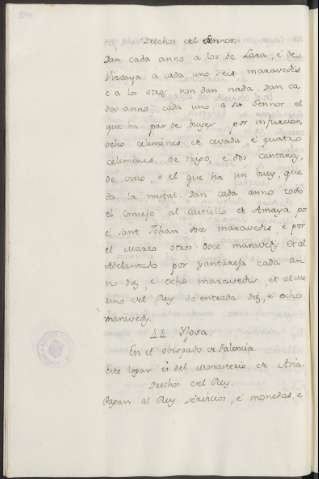 Drechos del Sennor.
Dan cada anno a los de Lara, é de
Vizcaya a cada uno seis maravedis
é a los otros non dan nada. dan ca-
da anno cada uno a su Sennor el
que ha par de bueyes por infurcion
ocho celemines de cevada é quatro
celemines de trigo, é dos cantaras
de vino, é el que ha un buey, que
da la mitat. dan cada anno todo
el Concejo al Castillo de Amaya por
é Sant Johan doce maravedis, é por
el marzo otros doce maraveds. Et al
Adelantado por yantares cada an-
no diez, é ocho maravedis, et al me-
rino del Rey de entrada diez, é ocho
maraveds.
En el obispado de Palencia
Este logar es del Monasterio de
Drechos del Rey.
Pagan al Rey servicios, é monedas, é